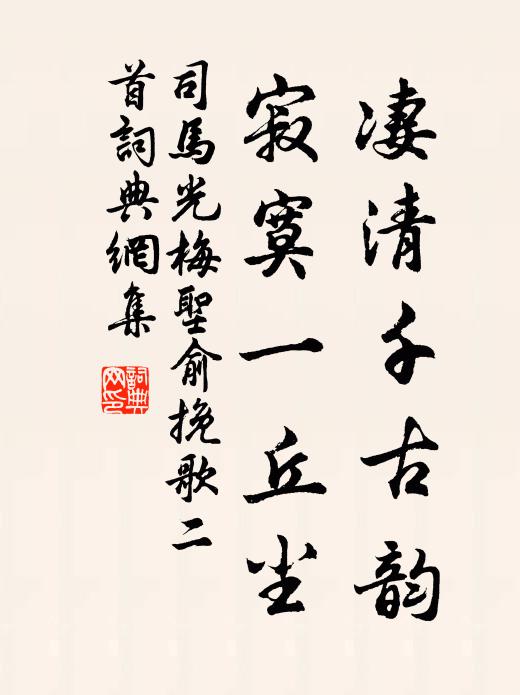 凄清千古韵
寂寞一丘尘
司馬光梅聖俞挽歌二
首詞典網集
詞典
网印